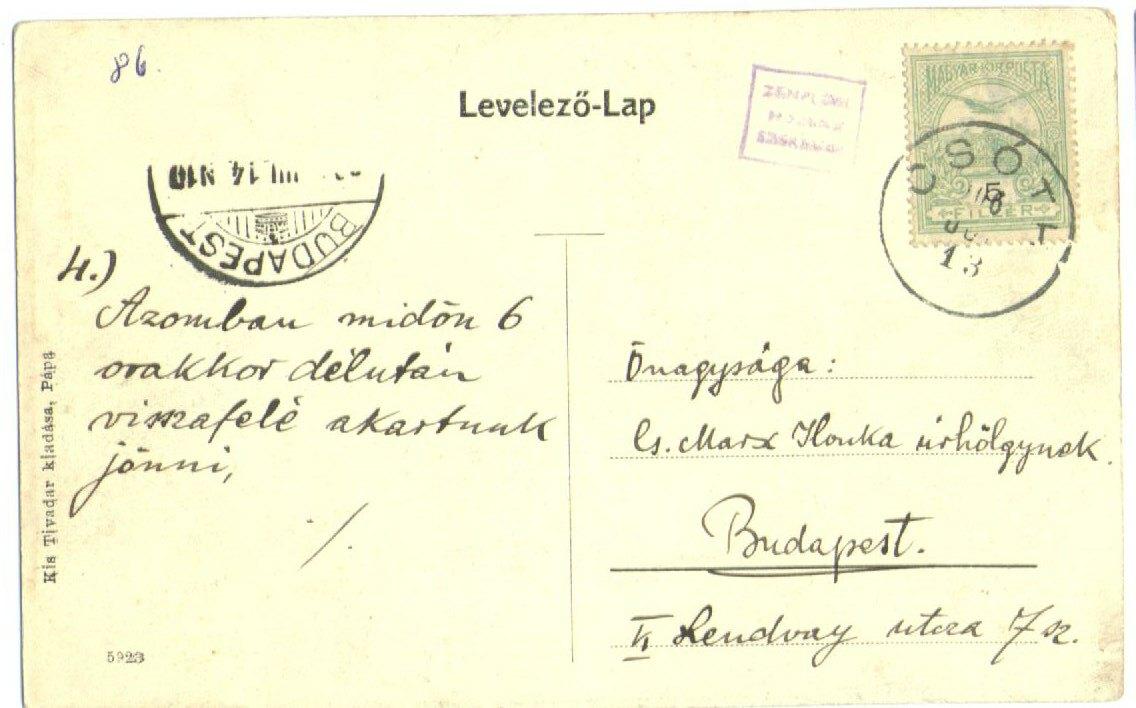 86.
Levelező-Lap
MAGYAR KIR. POSTA
FILLÉR
CSÓT
13
14 N10
BUDAPEST
4.)
Azomban midőn 6
orakkor délután
visszafelé akartunk
jönni,
./.
Őnagysága:
Cs. Marx Ilonka úrhölgynek.
Budapest.
Lendvay utcza 7 sz.
Kis Tivadar kiadása, Pápa
5923